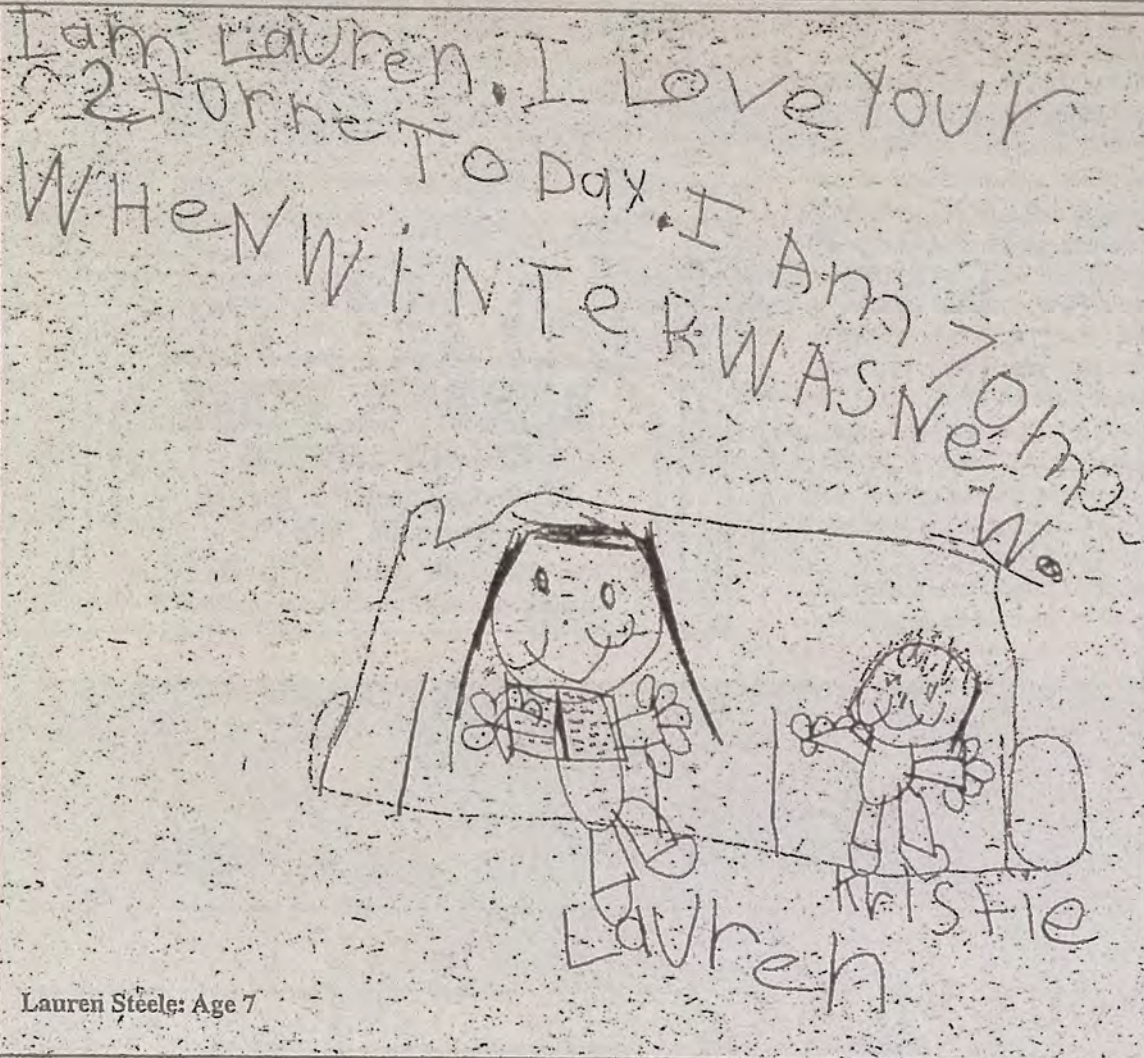 I am Lauren. I Love Your
Storne To Day. I Am 7 Ohmo-
WHeN WiNTeR WAS NeW.
Kristie
Lauren
Lauren Steele: Age 7